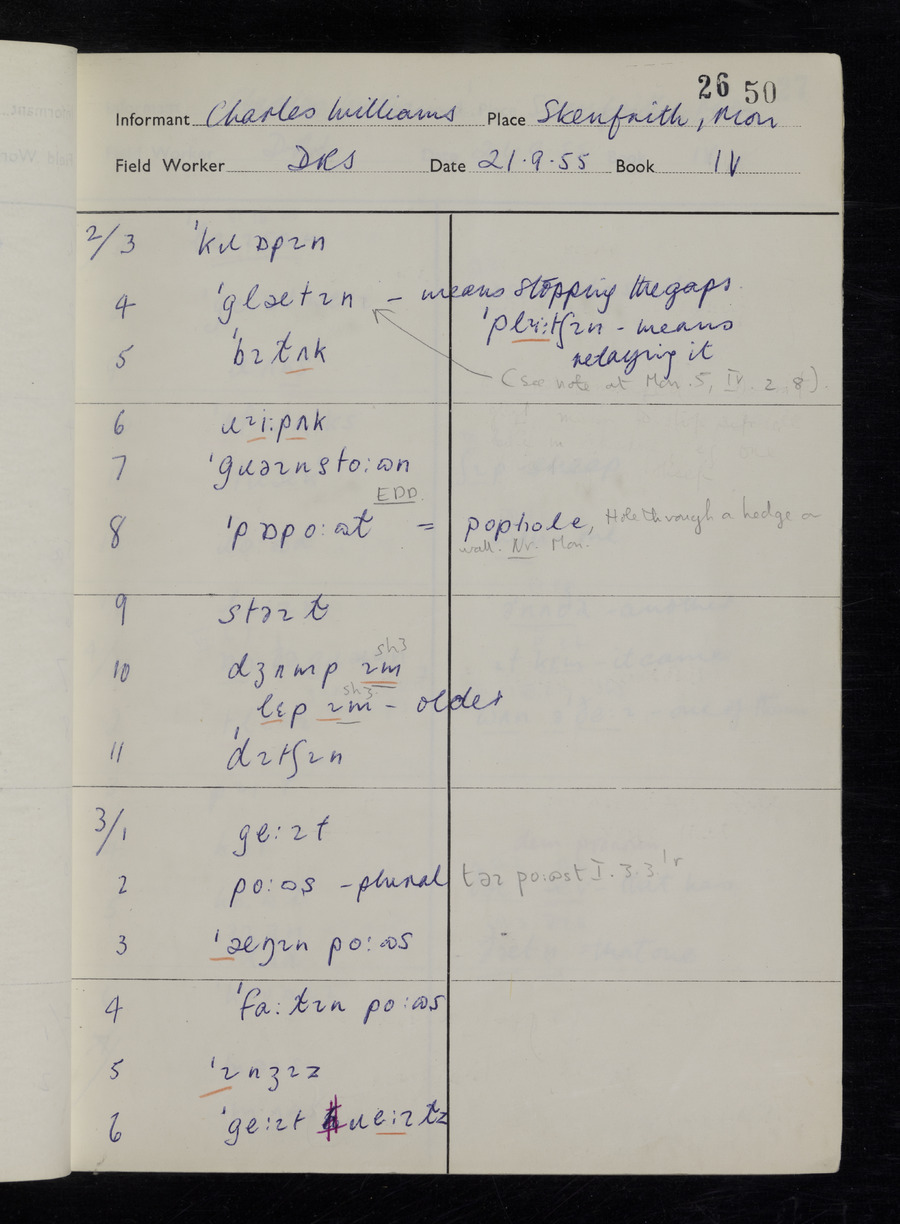 26 50
Informant Charles Williams Place Skenfrith, Mon
Field Worker DRS Date 21.9.55 Book IV
2/3 ˈkɹɒpɪn
4 ˈglætɪn – means stopping the gaps
ˈplɪi:tʃɪn – means
relaying it
5 ˈbɪtʌk
(see note at Mon. 5, IV. 2. 8).
6 ɹɪi:pʌk
7 ˈgɹəɪnsto:ən
EDD.
8 ˈpɒpo:ət = pophole, Hole through a hedge or
wall. Nr. Mon.
9 stəɪt
sh3
10 dʒʌmp ɪm
sh3
lɛp ɪm – older
11 ˈdɪtʃɪn
3/1 ge:ɪt
2 po:əs – plural təɪ po:əst I. 3. 3
3 ˈæŋɪn po:əs
4 ˈfa:tɪn po:əs
5 ˈɪnʒɪz
6 ˈge:ɪt ɹe:ɪtz